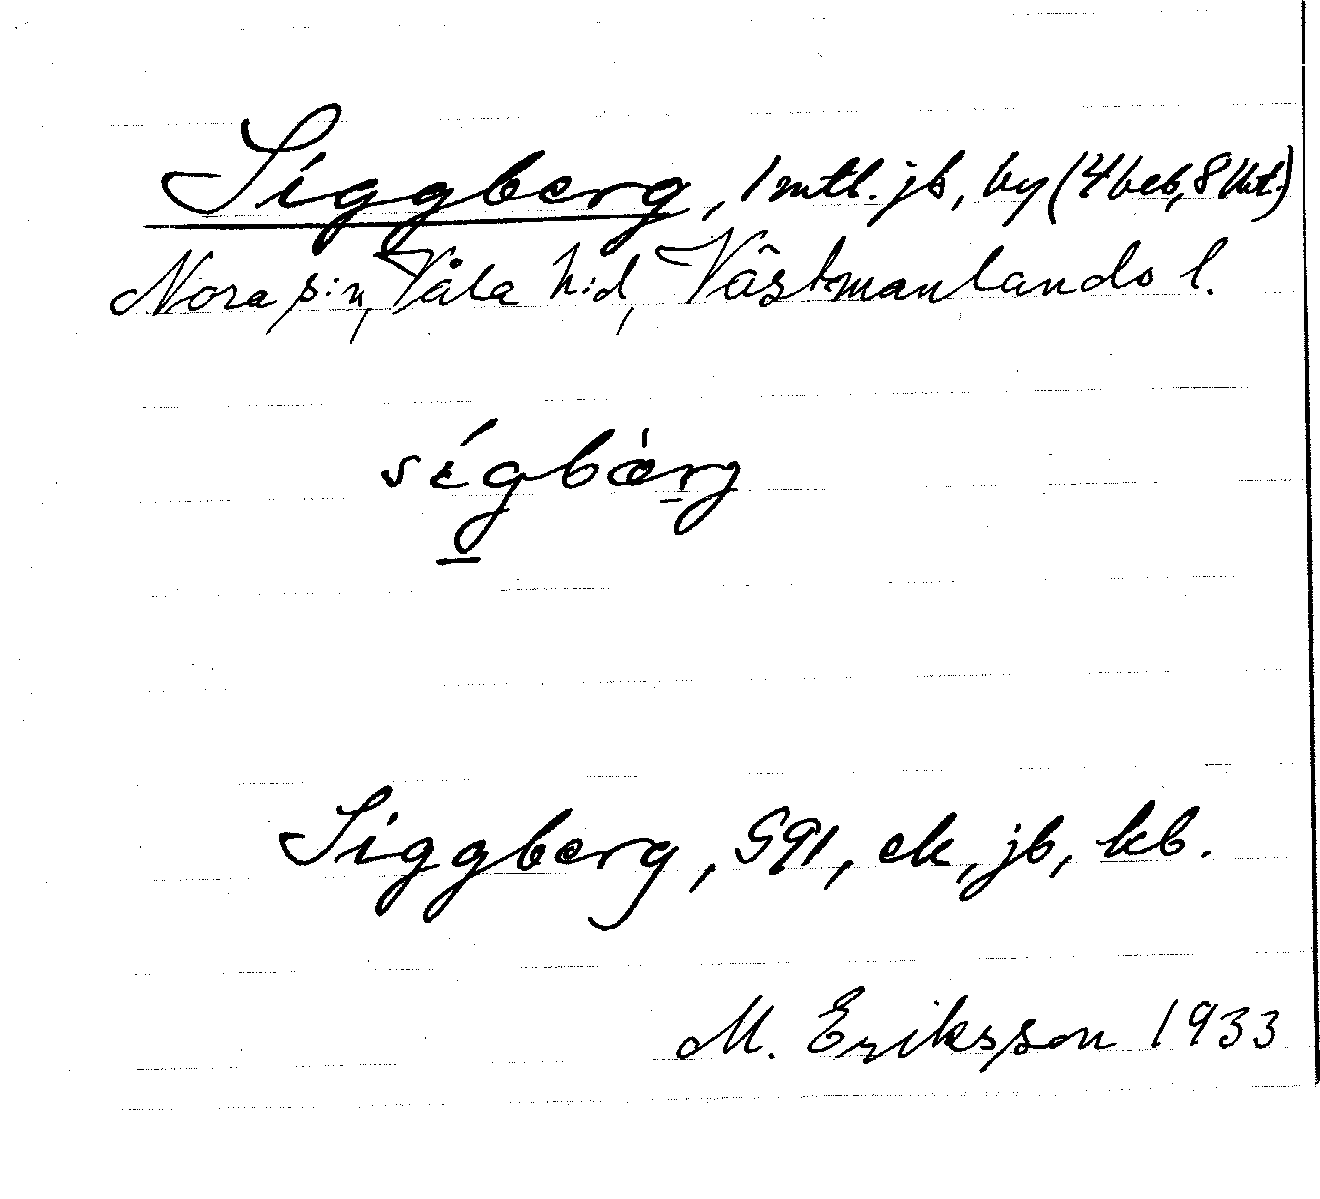 Siggberg, 1 mtl. jb, by (4 beb, 8 lht.)
Nora s:n, Våla h:d, Västmanlands l.
sígbàrg
Siggberg, G91, ek, jb, kb.
M. Eriksson 1933